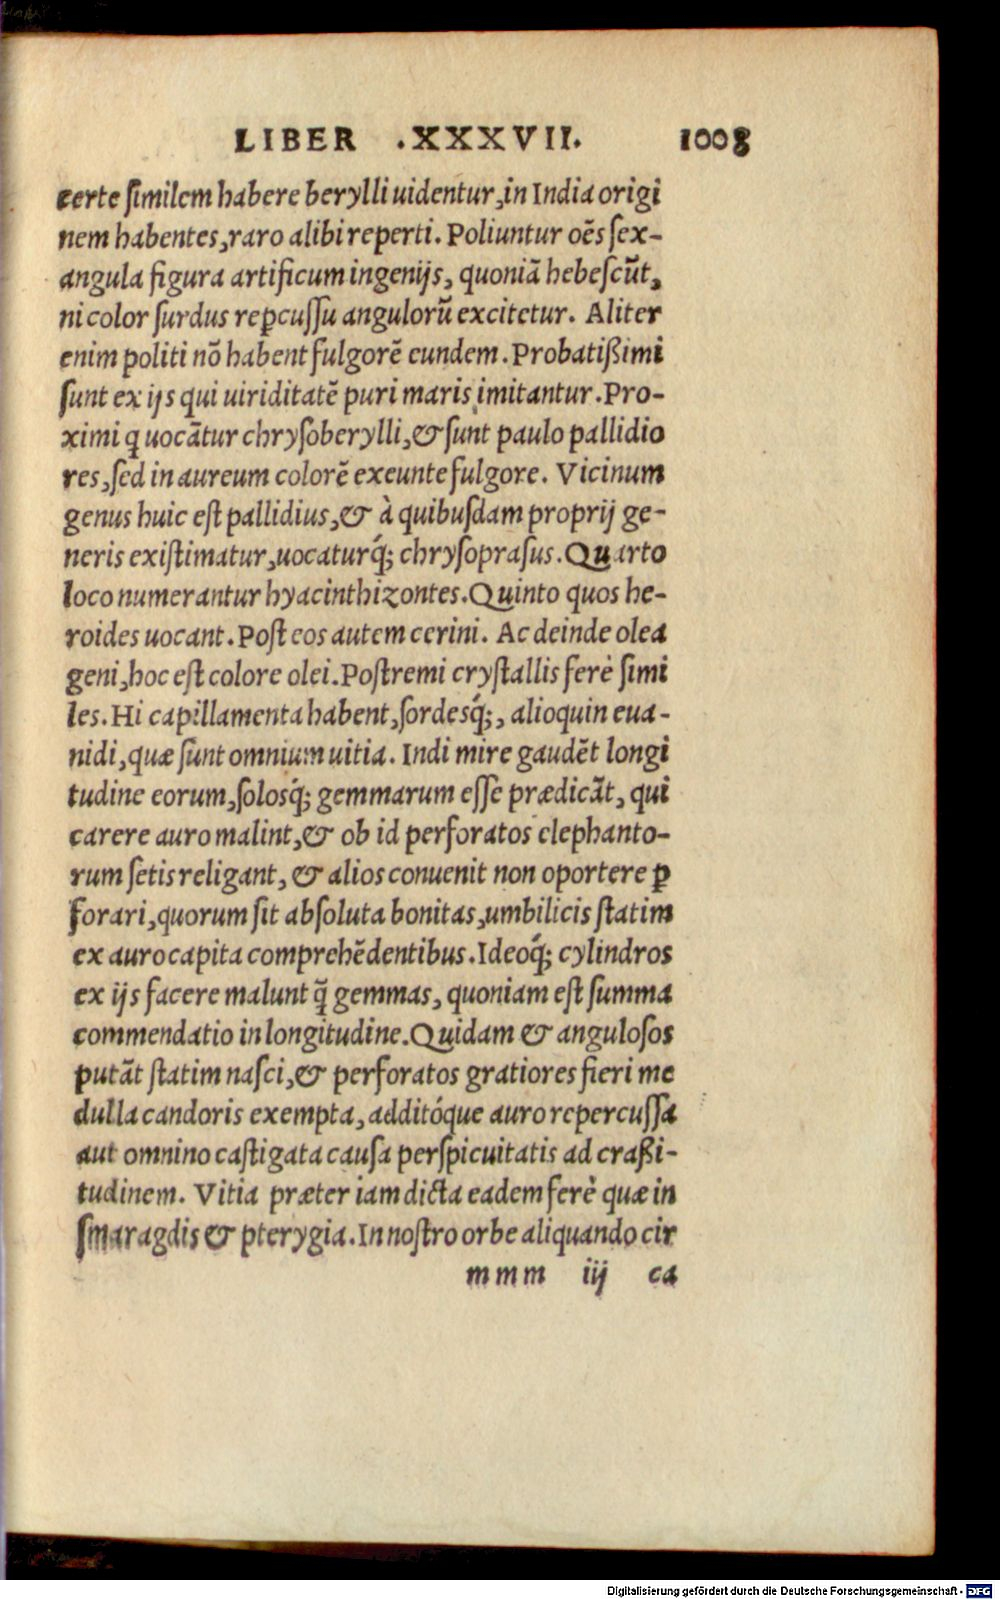 LIBER .XXXVII. 1008
certe ſimilem habere berylli uidentur,in India origi
nem habentes,raro alibi reperti. Poliuntur oẽs ſex-
angula figura artificum ingenijs, quoniã hebeſcũt,
ni color ſurdus reꝑcuſſu angulorũ excitetur. Aliter
enim politi nõ habent fulgorẽ eundem. Probatißimi
ſunt ex ijs qui uiriditatẽ puri maris imitantur. Pro-
ximi q uocãtur chryſoberylli,& ſunt paulo pallidio
res,ſed in aureum colorẽ exeunte fulgore. Vicinum
genus huic eſt pallidius,& à quibuſdam proprij ge-
neris exiſtimatur,uocaturq́; chryſopraſus. Quarto
loco numerantur hyacinthizontes. Quinto quos he-
roides uocant. Poſt eos autem cerini. Ac deinde olea
geni,hoc eſt colore olei. Poſtremi cryſtallis ferè ſimi
les. Hi capillamenta habent,ſordesq́;, alioquin eua-
nidi,quæ ſunt omnium uitia. Indi mire gaudẽt longi
tudine eorum,ſolosq́; gemmarum eſſe prædicãt, qui
carere auro malint,& ob id perforatos elephanto-
rum ſetis religant, & alios conuenit non oportere ꝑ
forari,quorum ſit abſoluta bonitas,umbilicis ſtatim
ex auro capita comprehẽdentibus. Ideoq́; cylindros
ex ijs facere malunt q̃ gemmas, quoniam eſt ſumma
commendatio in longitudine. Quidam & anguloſos
putãt ſtatim naſci,& perforatos gratiores fieri me
dulla candoris exempta, additóque auro repercuſſa
aut omnino caſtigata cauſa perſpicuitatis ad craßi-
tudinem. Vitia præter iam dicta eadem ferè quæ in
ſmaragdis & pterygia. In noſtro orbe aliquando cir
m m m iij ca
Digitalisierung gefördert durch die Deutsche Forschungsgemeinschaft - DFG